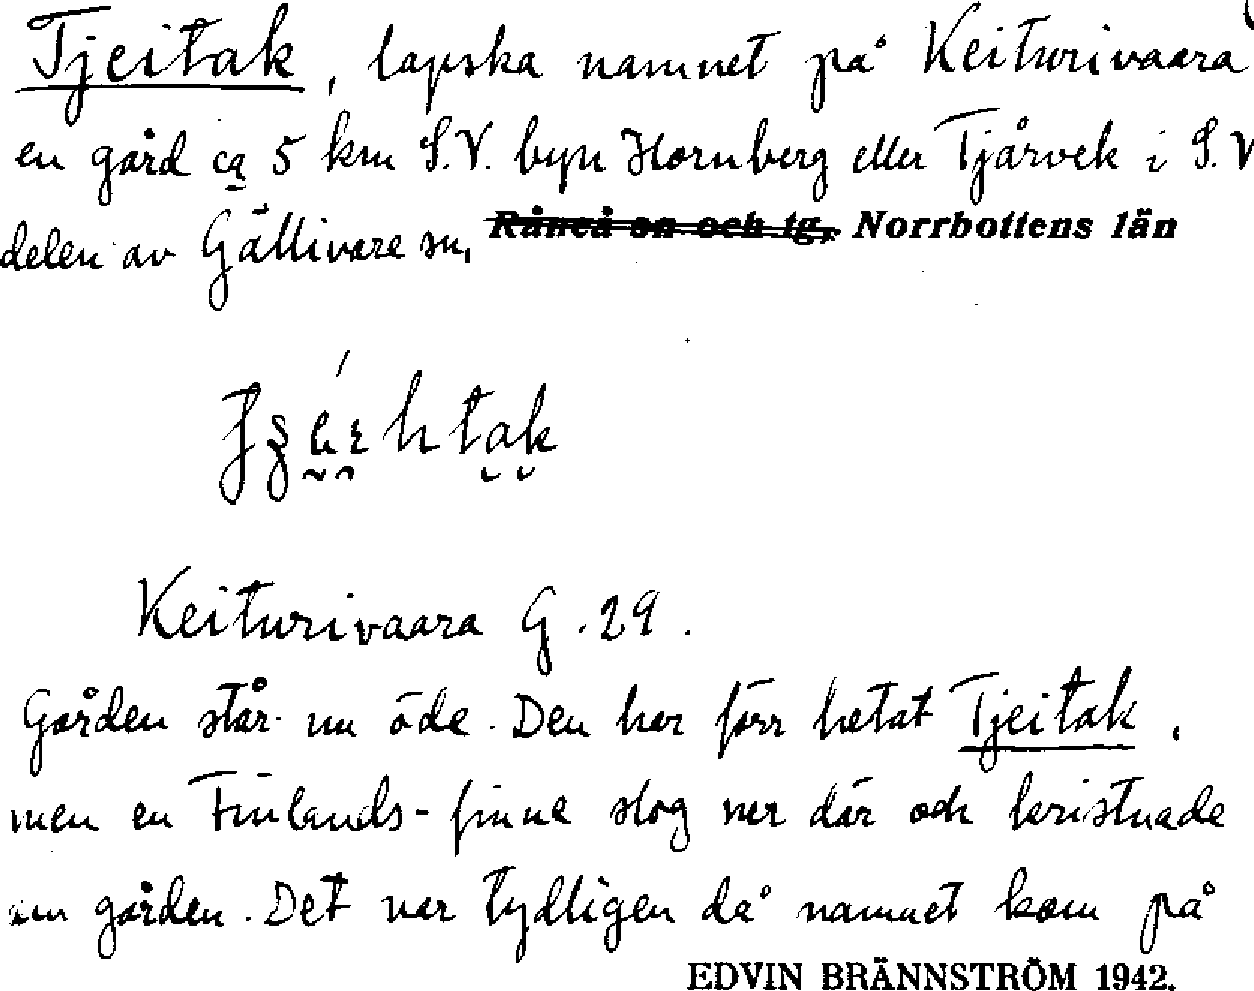 Tjeitak, lapska namnet på Keiturivaara
en gård ca 5 km S.V. byn Hornberg eller Tjårvek i S.V
delen av Gällivare sn, Råneå sn och tg, Norrbottens län
Keiturivaara G. 29.
Gården står nu öde. Den har förr hetat Tjeitak,
men en Finlands-finne slog ner där och kristnade
om gården. Det var tydligen då namnet kom på
EDVIN BRÄNNSTRÖM 1942.